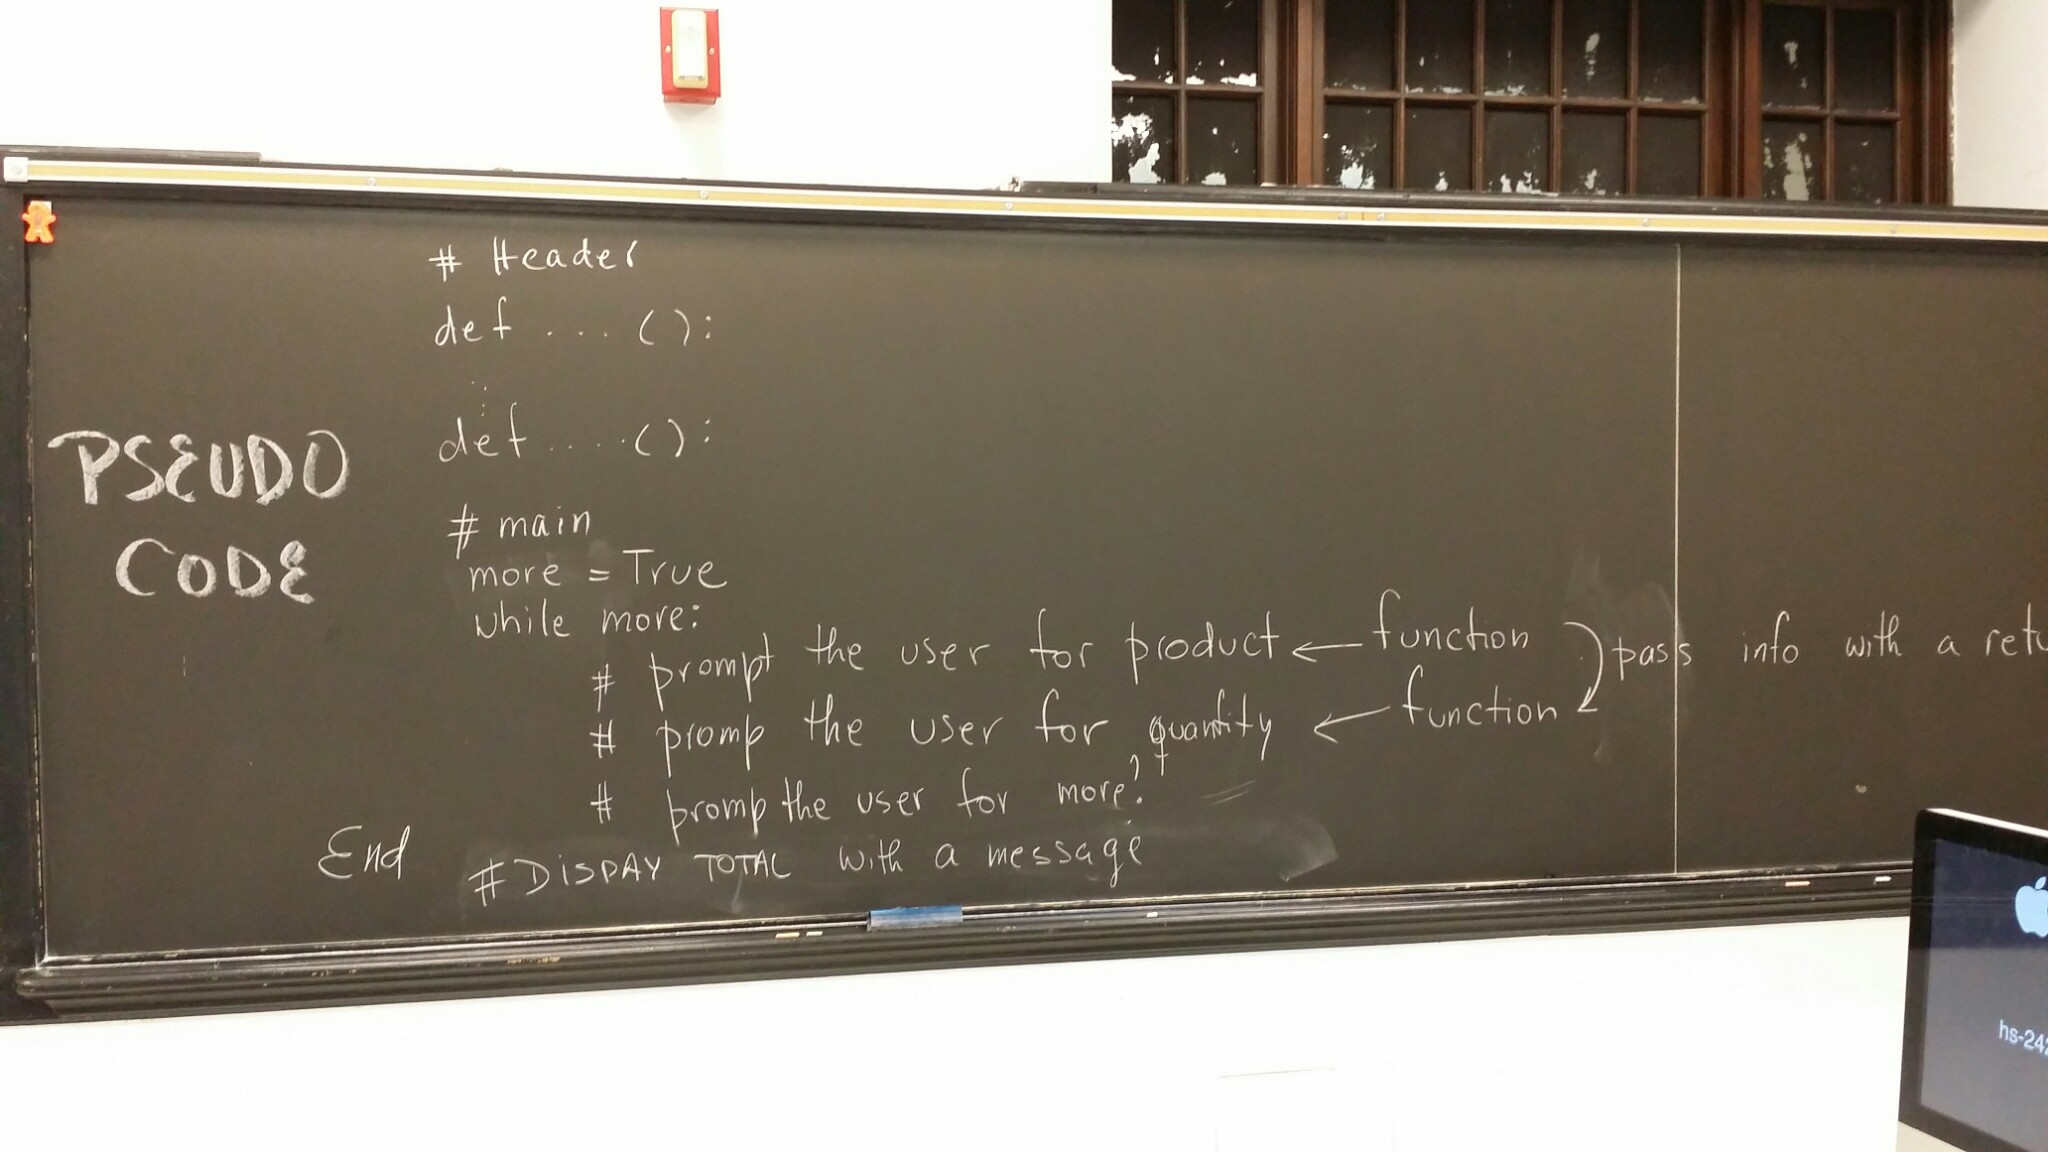 # Header
def ... ():
:
def ....():
PSEUDO
CODE
# main
more = True
while more:
# prompt the user for product ← function
pass info with a retu
# promp the user for quantity ← function
# promp the user for more?
End
#DISPAY TOTAL with a message
hs-242